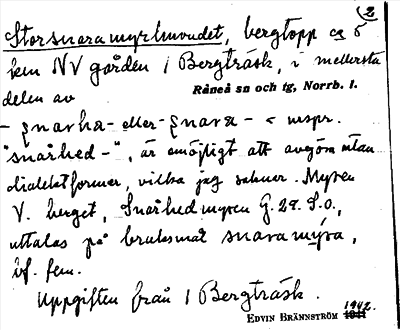 2
Storsnaramyrhuvudet, bergtopp ca 5
km NV gården 1 Bergträsk, i mellersta
delen av
Råneå sn och tg, Norrb. l.
- snarha- eller snara- < urspr.
"snårhed-", är omöjligt att avgöra utan
dialektformer, vilka jag saknar. Myren
V. berget, Snårhedmyren G. 29. S.o.,
uttalas på bruksmål snaramýra,
bf. fem.
Uppgiften från 1 Bergträsk.
EDVIN BRÄNNSTRÖM 1942.